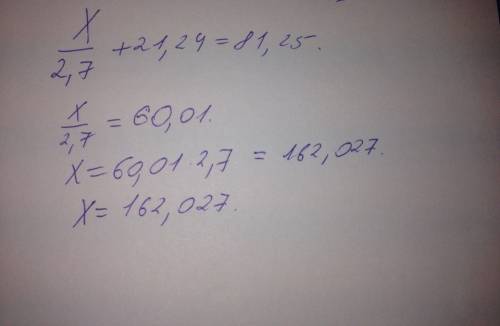 X/2,7 + 21,24 = 81,25.
x/2,7 = 60,01.
X = 60,01 · 2,7 = 162,027.
X = 162,027.